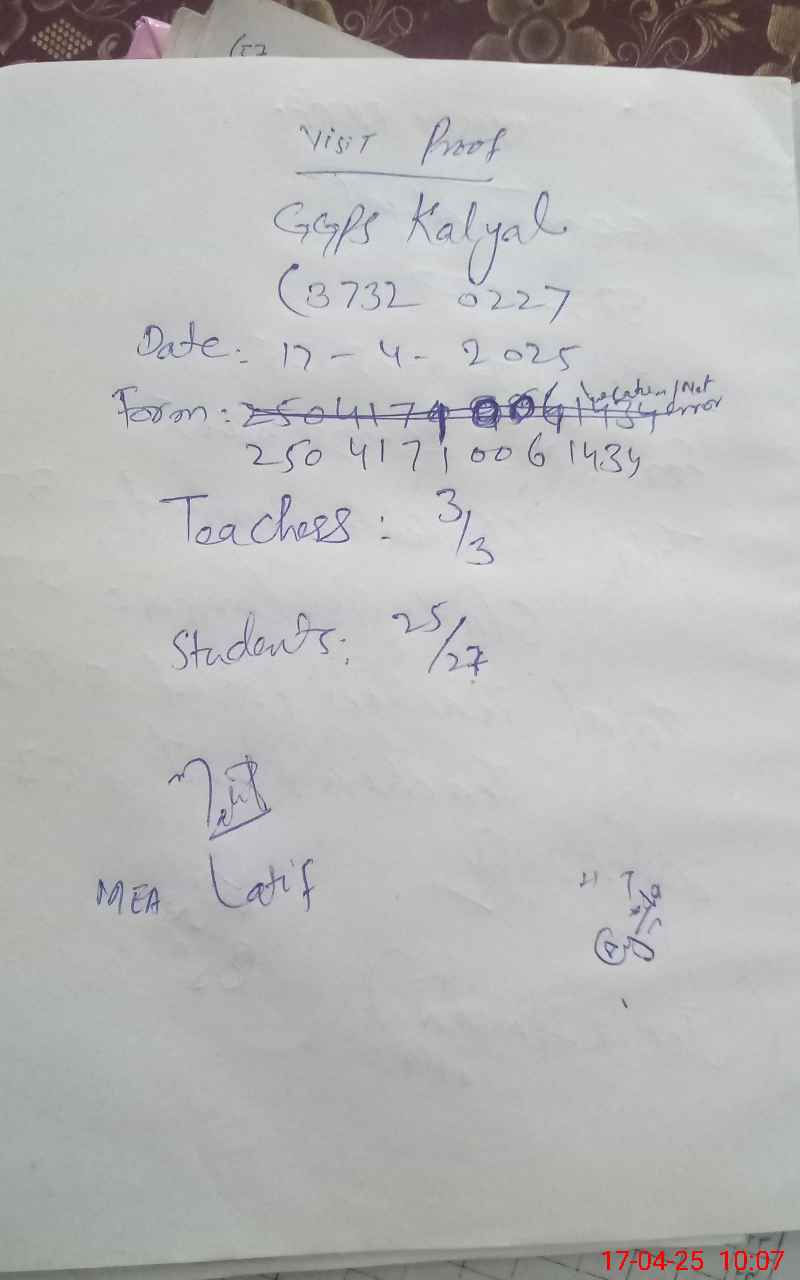 Visit Proof
GGPS Kalyal
(3732 0227
Date: 17-4-2025
Form: 25041719 0061434 Location/Net error
250 4171 0061434
Teachers: 3/3
Students: 25/27
MEA Latif
H T
17-04-25 10:07